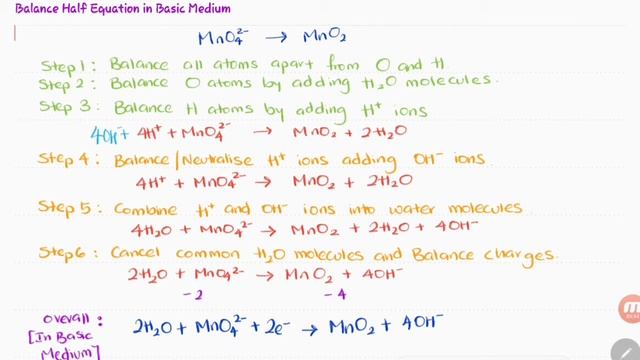 Balance Half Equation in Basic Medium
MnO₄²⁻ → MnO₂
Step 1 : Balance all atoms apart from O and H.
Step 2 : Balance O atoms by adding H₂O molecules.
Step 3 : Balance H atoms by adding H⁺ ions
4OH⁻ + 4H⁺ + MnO₄²⁻ → MnO₂ + 2H₂O
Step 4 : Balance/Neutralise H⁺ ions adding OH⁻ ions.
4H⁺ + MnO₄²⁻ → MnO₂ + 2H₂O
Step 5 : Combine H⁺ and OH⁻ ions into water molecules
4H₂O + MnO₄²⁻ → MnO₂ + 2H₂O + 4OH⁻
Step 6 : Cancel common H₂O molecules and Balance charges.
2H₂O + MnO₄²⁻ → MnO₂ + 4OH⁻
-2 -4
Overall :
[In Basic
Medium]
2H₂O + MnO₄²⁻ + 2e⁻ → MnO₂ + 4OH⁻